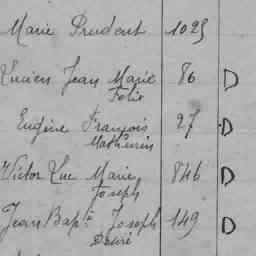 Marie Prudent 1025
Lucien Jean Marie 86 D
Félix
Eugène François 27 D
Mathurin
Victor Luc Marie 846 D
Joseph
Jean Bapte Joseph 149 D
Désiré